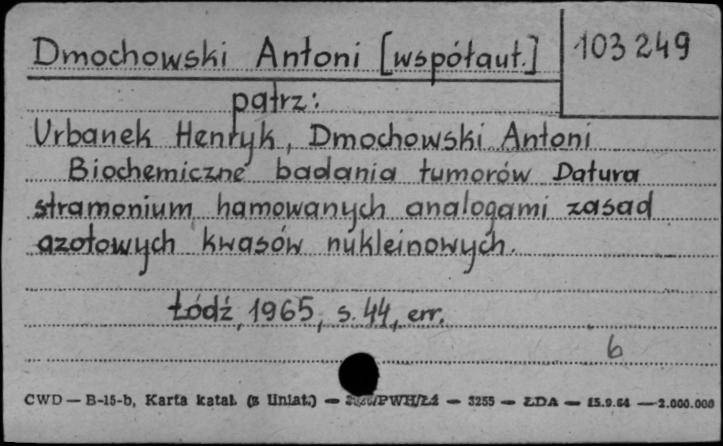 Dmochowski Antoni [współaut.]
103 249
patrz:
Urbanek Henryk, Dmochowski Antoni
Biochemiczne badania tumorów Datura
stramonium hamowanych analogami zasad
azotowych kwasów nukleinowych.
Łódź, 1965, s. 44, err.
6
CWD — B-15-b, Karta katal. (z Uniat.) — /PWH/Łd — 3255 — ŁDA — 15.9.64 — 2.000.000